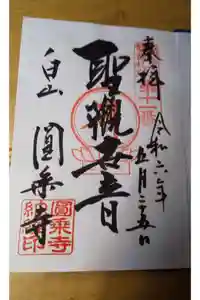 奉拝
令和六年
五月二五日
聖観世音
白山
圓乗寺
圓乗寺
納印